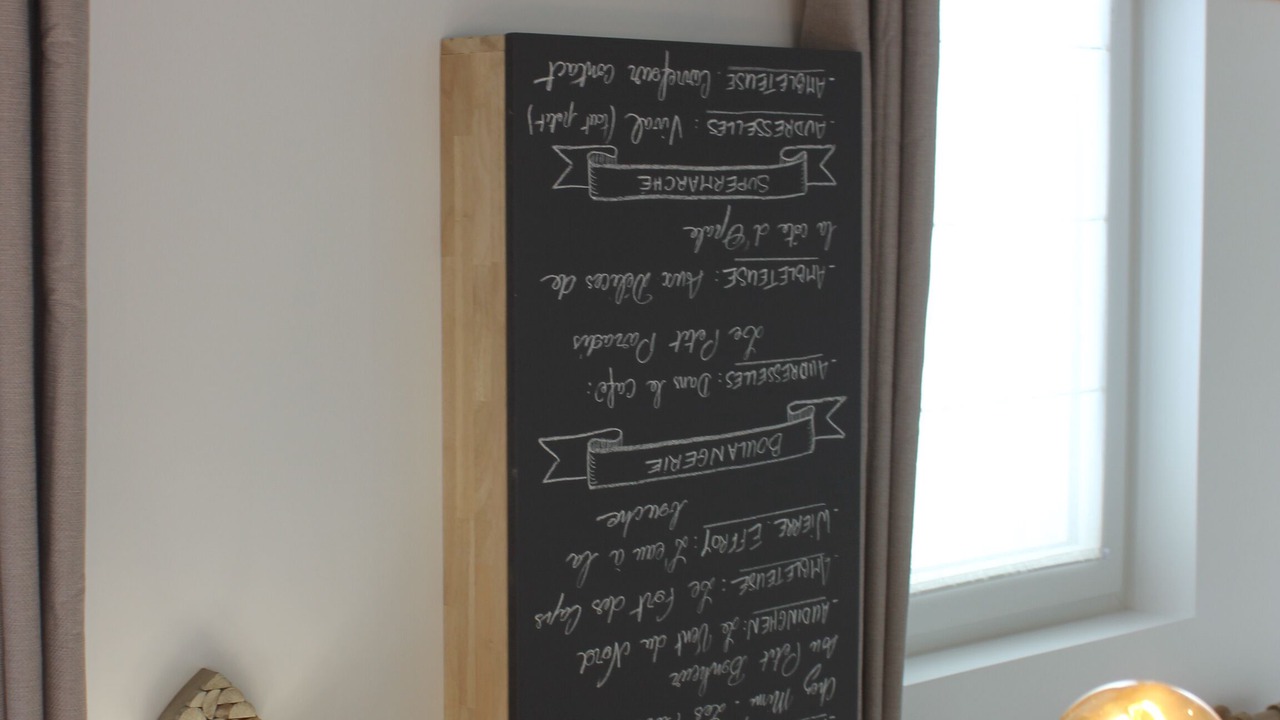 Chez Mimi. Les
Au Petit Bonheur
- AUDINGHEN: Le Vent du Nord
- AMBLETEUSE: Le Fort des Caps
- WIERRE EFFROY: L'eau à la
bouche
BOULANGERIE
- AUDRESSELLES: Dans le Café:
Le Petit Paradis
- AMBLETEUSE: Aux Délices de
la côte d'Opale
SUPERMARCHE
- AUDRESSELLES: Vival (tout petit)
- AMBLETEUSE: Carrefour Contact